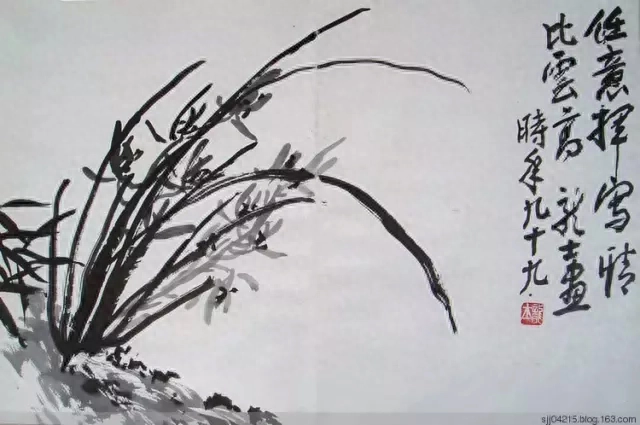 任意揮寫情
比雲高 龍畫
時年九十九
sjj04215.blog.163.com